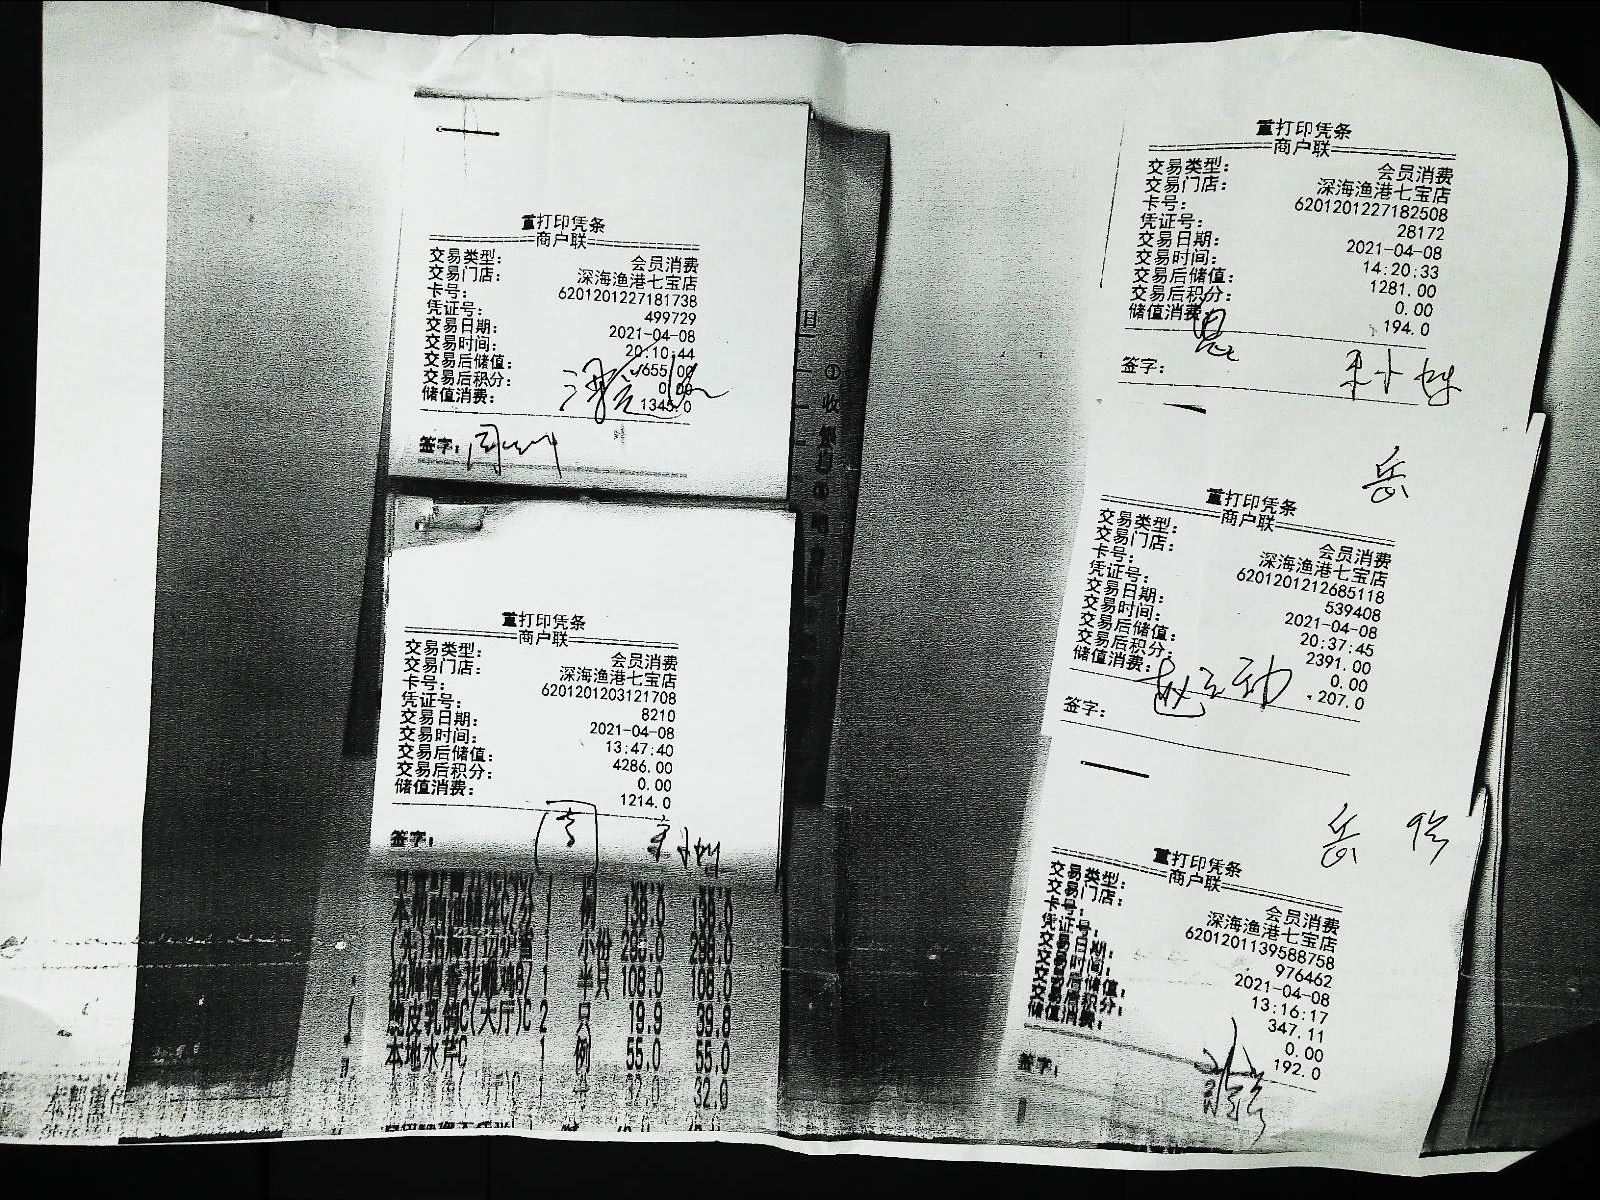 重打印凭条
商户联
交易类型： 会员消费
交易门店： 深海渔港七宝店
卡号： 6201201227181738
凭证号： 499729
交易日期： 2021-04-08
交易时间： 20:10:44
交易后储值： 655.00
交易后积分： 0.00
储值消费： 1345.0
签字：
重打印凭条
商户联
交易类型： 会员消费
交易门店： 深海渔港七宝店
卡号： 6201201203121708
凭证号： 8210
交易日期： 2021-04-08
交易时间： 13:47:40
交易后储值： 4286.00
交易后积分： 0.00
储值消费： 1214.0
签字：
1 例 138.0 138.0
1 小份 298.0 298.0
1 半只 108.0 108.0
脆皮乳鸽C(大厅)C 2 只 19.9 39.8
本地水芹C 1 例 55.0 55.0
1 32.0 32.0
重打印凭条
商户联
交易类型： 会员消费
交易门店： 深海渔港七宝店
卡号： 6201201227182508
凭证号： 28172
交易日期： 2021-04-08
交易时间： 14:20:33
交易后储值： 1281.00
交易后积分： 0.00
储值消费： 194.0
签字：
岳
重打印凭条
商户联
交易类型： 会员消费
交易门店： 深海渔港七宝店
卡号： 6201201212685118
凭证号： 539408
交易日期： 2021-04-08
交易时间： 20:37:45
交易后储值： 2391.00
交易后积分： 0.00
储值消费： 207.0
签字：
岳
重打印凭条
商户联
交易类型： 会员消费
交易门店： 深海渔港七宝店
卡号： 6201201139588758
凭证号： 976462
交易日期： 2021-04-08
交易时间： 13:16:17
交易后储值： 347.11
交易后积分： 0.00
储值消费： 192.0
签字：